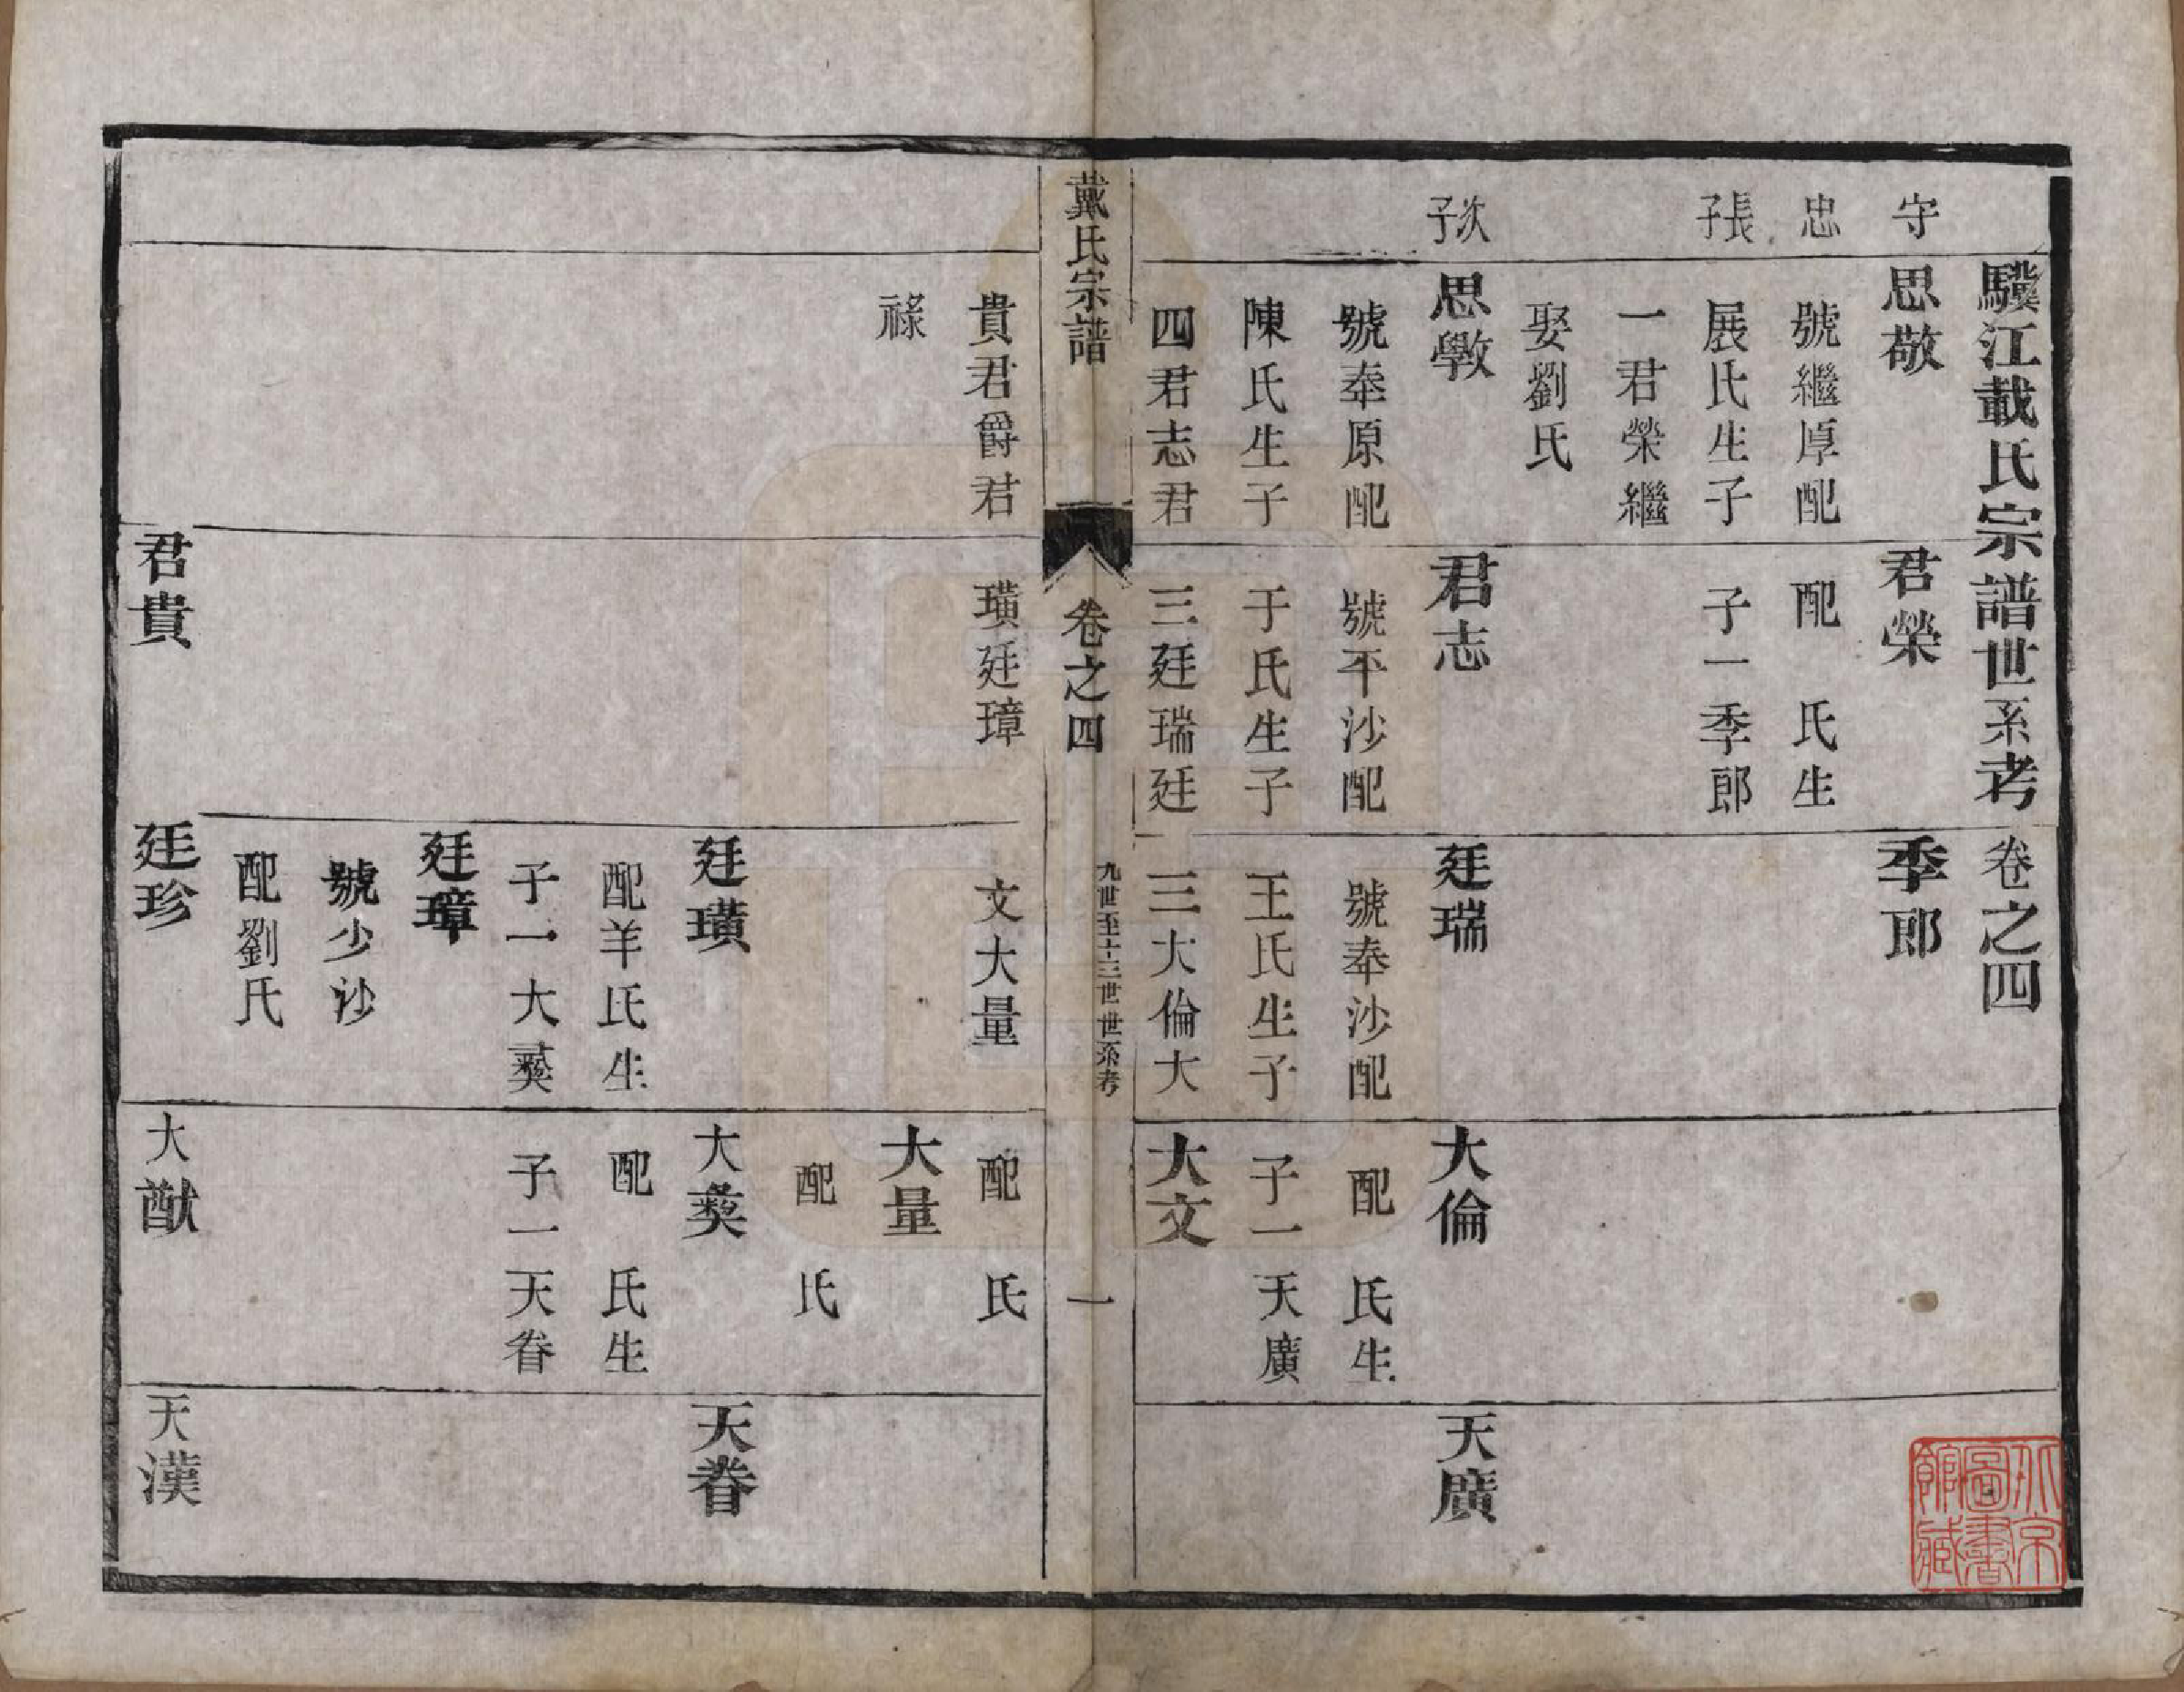 驥江戴氏宗譜世系考 卷之四
守 思敬 君榮 季郎
忠 號繼厚配 配 氏生
長子 展氏生子 子一季郎
一君榮繼
娶劉氏
次子 思斆 君志 廷瑞 大倫 天廣
號奉原配 號平沙配 號奉沙配 配 氏生
陳氏生子 于氏生子 王氏生子 子一天廣
四君志君 三廷瑞廷 三大倫大 大文
戴氏宗譜 卷之四 九世至十三世世系考 一
貴君爵君 璜廷璋 文大量 配 氏
祿 大量
配 氏
廷璜 大彝 天眷
配羊氏生 配 氏生
子一大彝 子一天眷
廷璋
號少沙
配劉氏
君貴 廷珍 大猷 天漢
北京圖書館藏